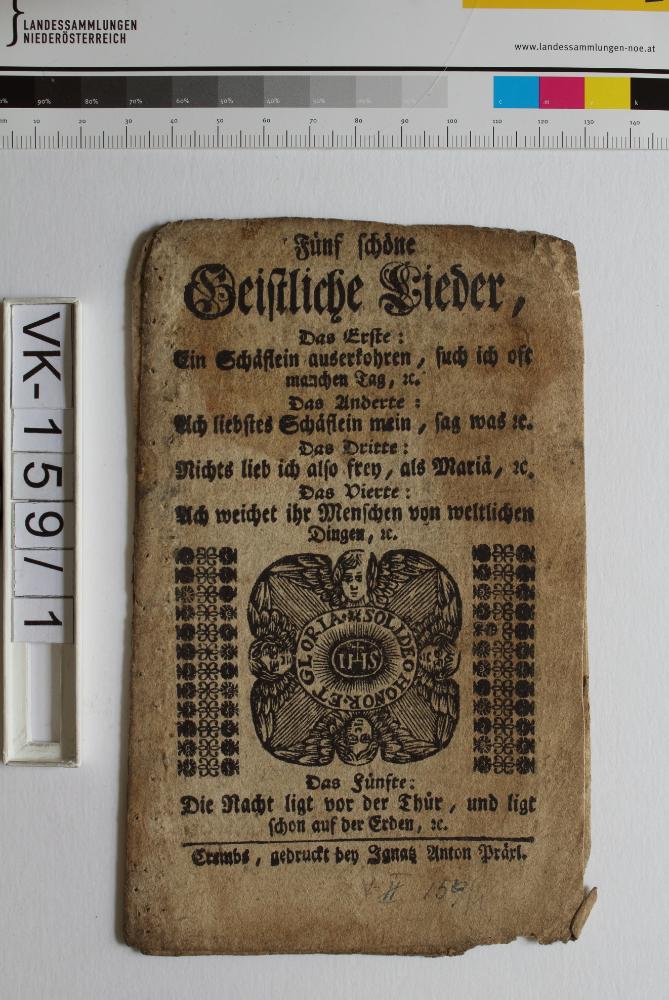 LANDESSAMMLUNGEN
NIEDERÖSTERREICH
www.landessammlungen-noe.at
90% 80% 70% 60% 50% 40% 30% 20% 10% c m y k
10 20 30 40 50 60 70 80 90 100 110 120 130 140
VK-159/1
Fünf schöne
Geistliche Lieder,
Das Erste:
Ein Schäflein auserkohren, such ich oft
manchen Tag, ꝛc.
Das Anderte:
Ach liebstes Schäflein mein, sag was ꝛc.
Das Dritte:
Nichts lieb ich also frey, als Mariä, ꝛc.
Das Vierte:
Ach weichet ihr Menschen von weltlichen
Dingen, ꝛc.
SOLI DEO HONOR ET GLORIA
IHS
Das Fünfte:
Die Nacht ligt vor der Thür, und ligt
schon auf der Erden, ꝛc.
Crembs, gedruckt bey Ignatz Anton Präxl.